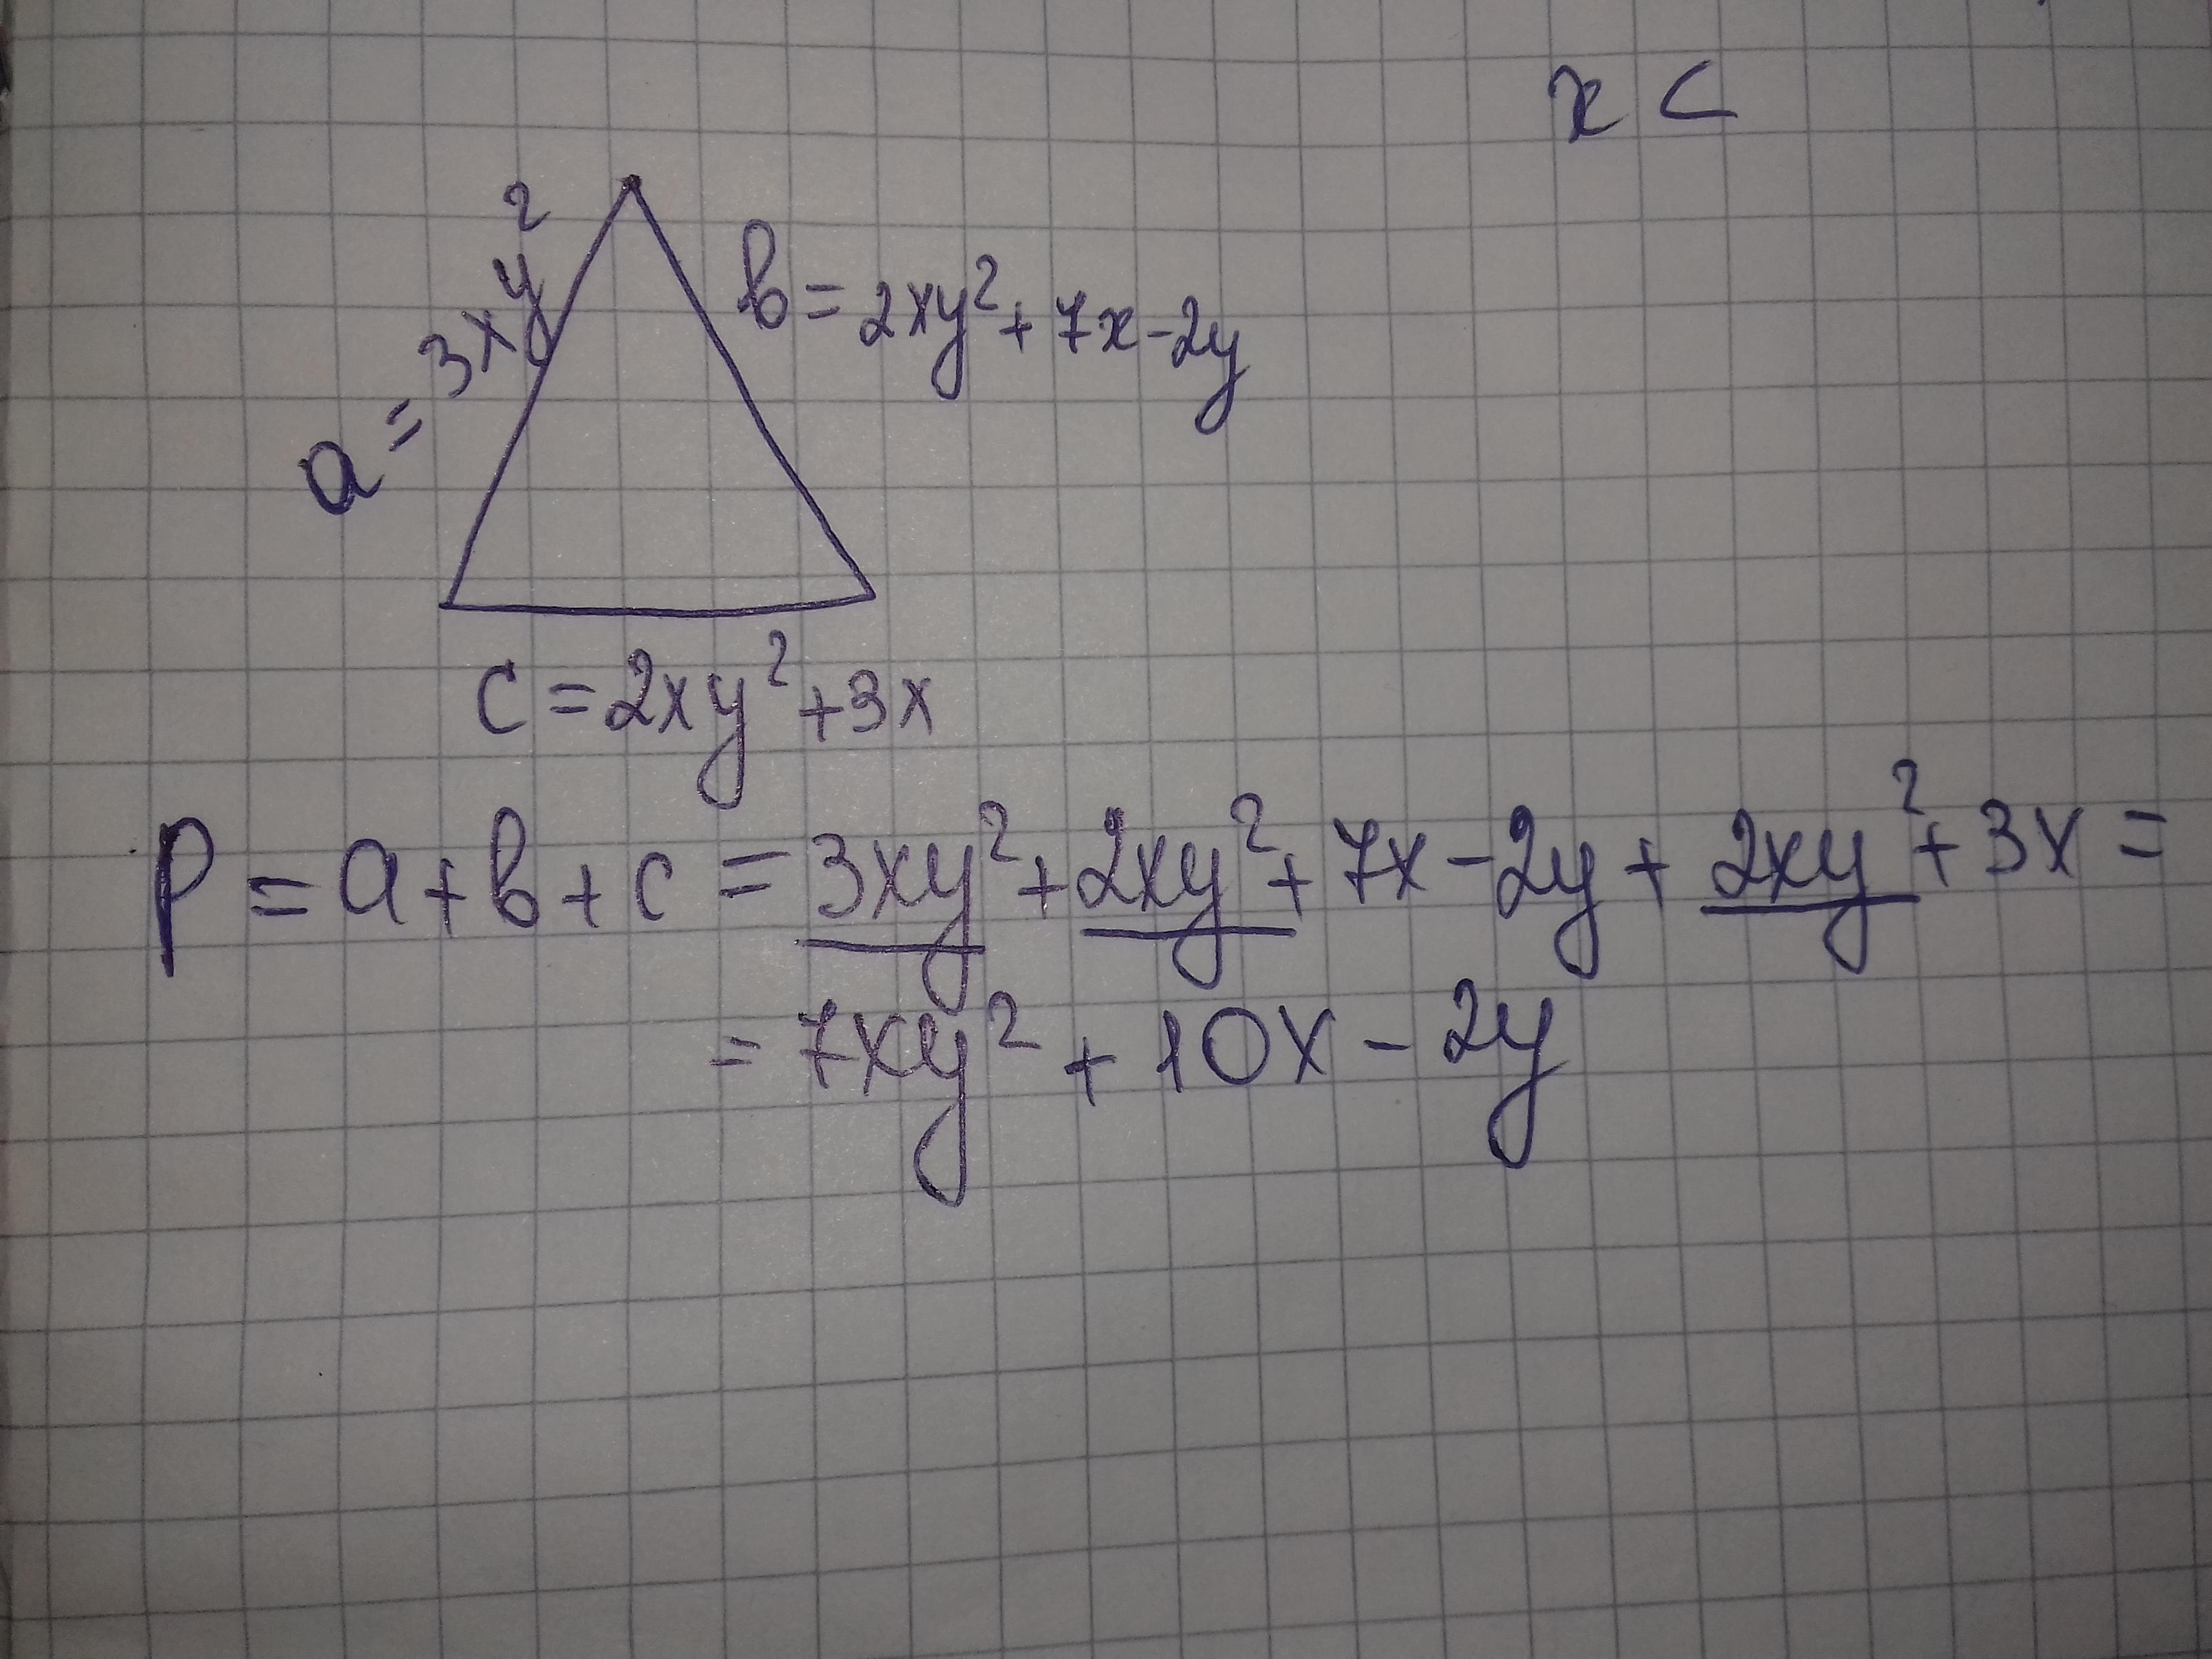 x <
a = 3xy²
b = 2xy² + 7x - 2y
c = 2xy² + 3x
P = a + b + c = 3xy² + 2xy² + 7x - 2y + 2xy² + 3x =
= 7xy² + 10x - 2y